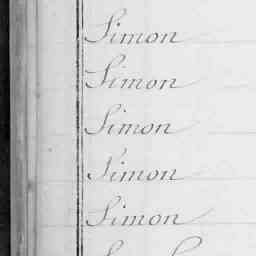 Simon
Simon
Simon
Simon
Simon